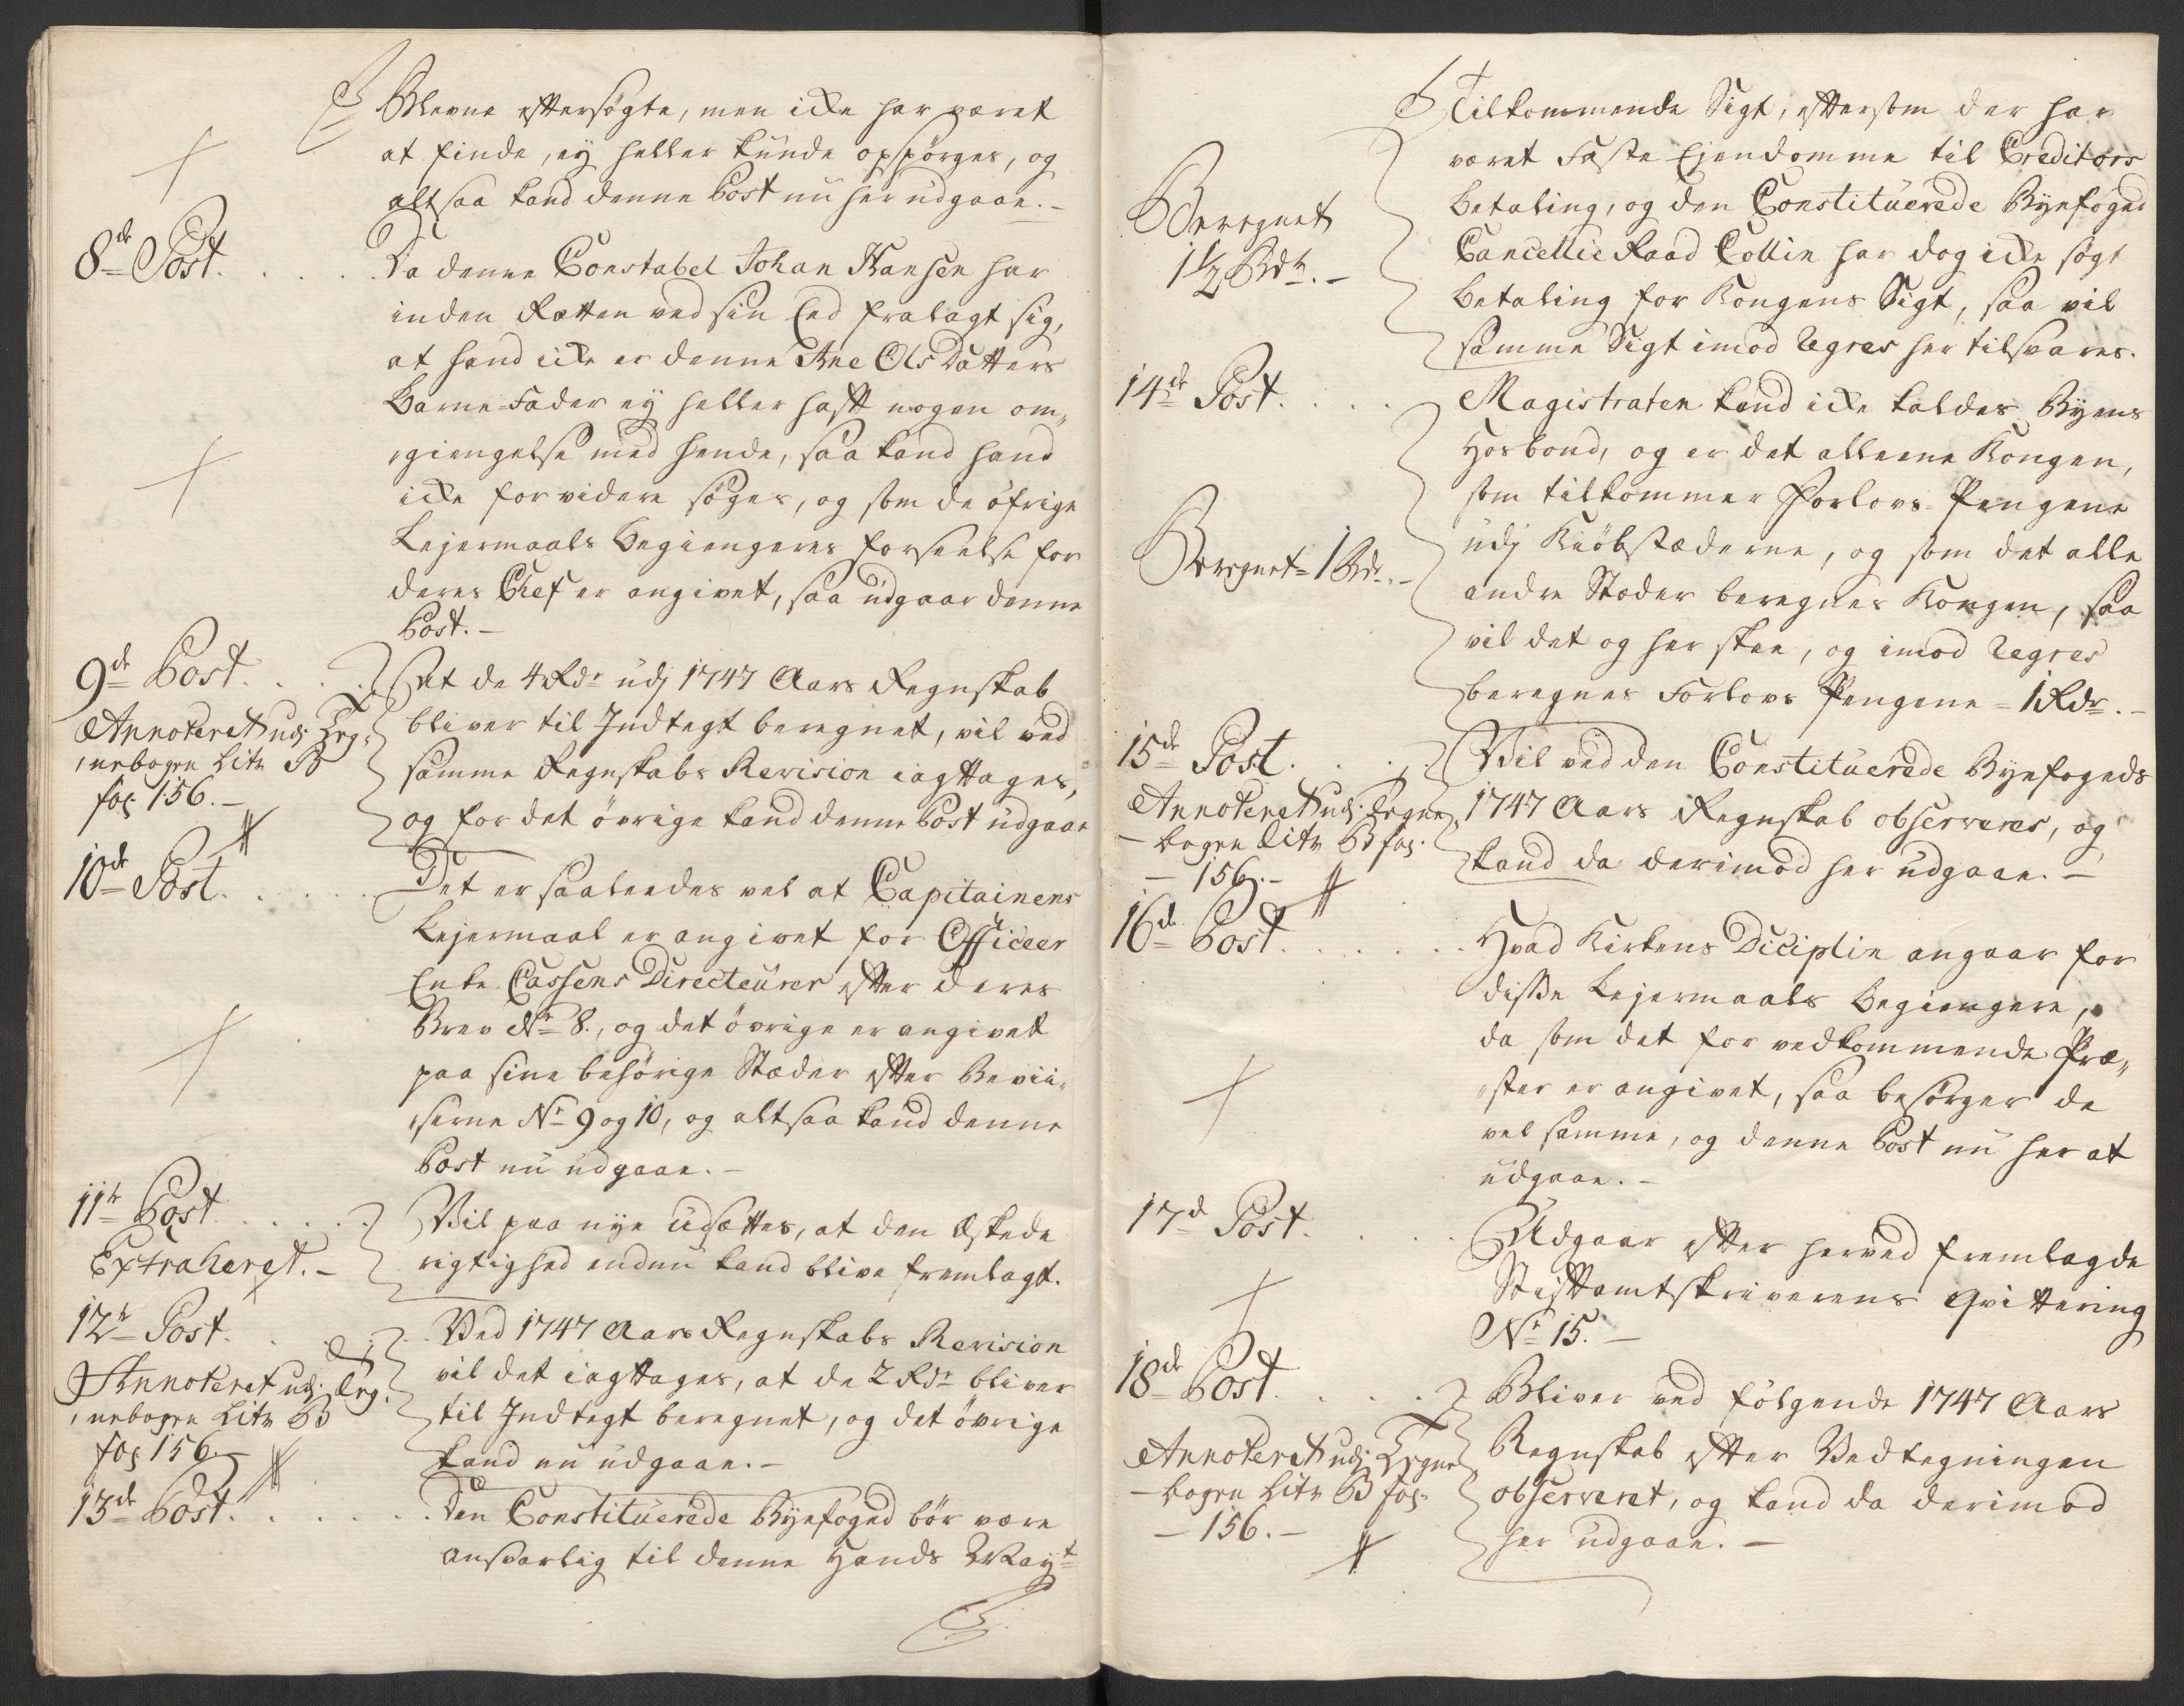 Blevne efttersögte, men icke har været
at finde, ey heller kunde opspörges, og
altsaa kand denne Post nu her udgaae.-
8de Post. . . . Da denne Constabel Johan Hansen har
inden Rætten ved sin Eed fralagt sig,
at hand icke er denne Ane Ols Datters
Barne-Fader ey heller hafft nogen om„
„giengelse med hende, saa kand hand
icke for videre söges, og som de öfrige
Lejermaals Begiengeres forseelse for
deres Chef er angivet, saa udgaar denne
Post.-
9de Post. . . . At de 4 Rdr udj 1747 Aars Regnskab
Annoteret udj Teg„ bliver til Indtegt beregnet, vil ved
„nebogen Litr B samme Regnskabs Revision iagttages,
fol 156.- og for det övrige kand denne Post udgaae
10de Post. . . . Det er saaledes vel at Capitainens
Lejermaal er angivet for Officeer
Enke Cassens Directeurer efter deres
Brev No 8., og det övrige er angivet
paa sine behörige Stæder efter Bevii„
„serne No 9 og 10, og altsaa kand denne
Post nu udgaae.-
11te Post . . . . Vil paa nye udsættes, at den Æskede
Extraheret.- rigtighed endnu kand blive fremlagt.
12te Post. . . . Ved 1747 Aars Regnskabs Revision
Annoteret udj Teg„ vil det iagttages, at de 2 Rdr bliver
„nebogen Litr B til Indtegt beregnet, og det övrige
fol 156.- kand nu udgaae.-
13de Post. . . . Den Constituerede Byefoged bör være
ansvarlig til denne Hands Mayt
Tilkommende Sigt, efttersom der har
været Faste Ejendomme til Creditors
Beregnet Betaling, og den Constituerede Byefoged
1½ Rdr.- Cancellie Raad Collin har dog icke sögt
Betaling for Kongens Sigt, saa vil
samme Sigt imod Regres her tilsvares.
14de Post. . . . Magistraten kand icke kaldes Byens
Hosbond, og er det alleene Kongen,
som tilkommer Forlovs-Pengene
Beregnet = 1 Rdr.- udj Kiöbstæderne, og som det alle
andre Stæder beregnes Kongen, saa
vil det og her skee, og imod Regres
beregnes Forlovs Pengene = 1 Rdr.-
15de Post. . . . Vil ved den Constituerede Byefogeds
Annoteret udj Tegne„ 1747 Aars Regnskab observeres, og
- bogen Litr B fol. kand da derimod her udgaae.-
- 156.-
16de Post. . . . Hvad Kirkens Diciplin angaar for
disse Lejermaals Begiengere,
da som det for vedkommende Præ„
„ster er angivet, saa besörger de
vel samme, og denne Post nu her at
udgaae.-
17de Post. . . . Udgaar efter herved fremlagde
Stifftamtskriverens Qvittering
No 15.-
18de Post. . . . Bliver ved fölgende 1747 Aars
Annoteret udj Tegne Regnskab efter Vedtegningen
- bogen Litr B fol. observeret, og kand da derimod
- 156.- her udgaae.-